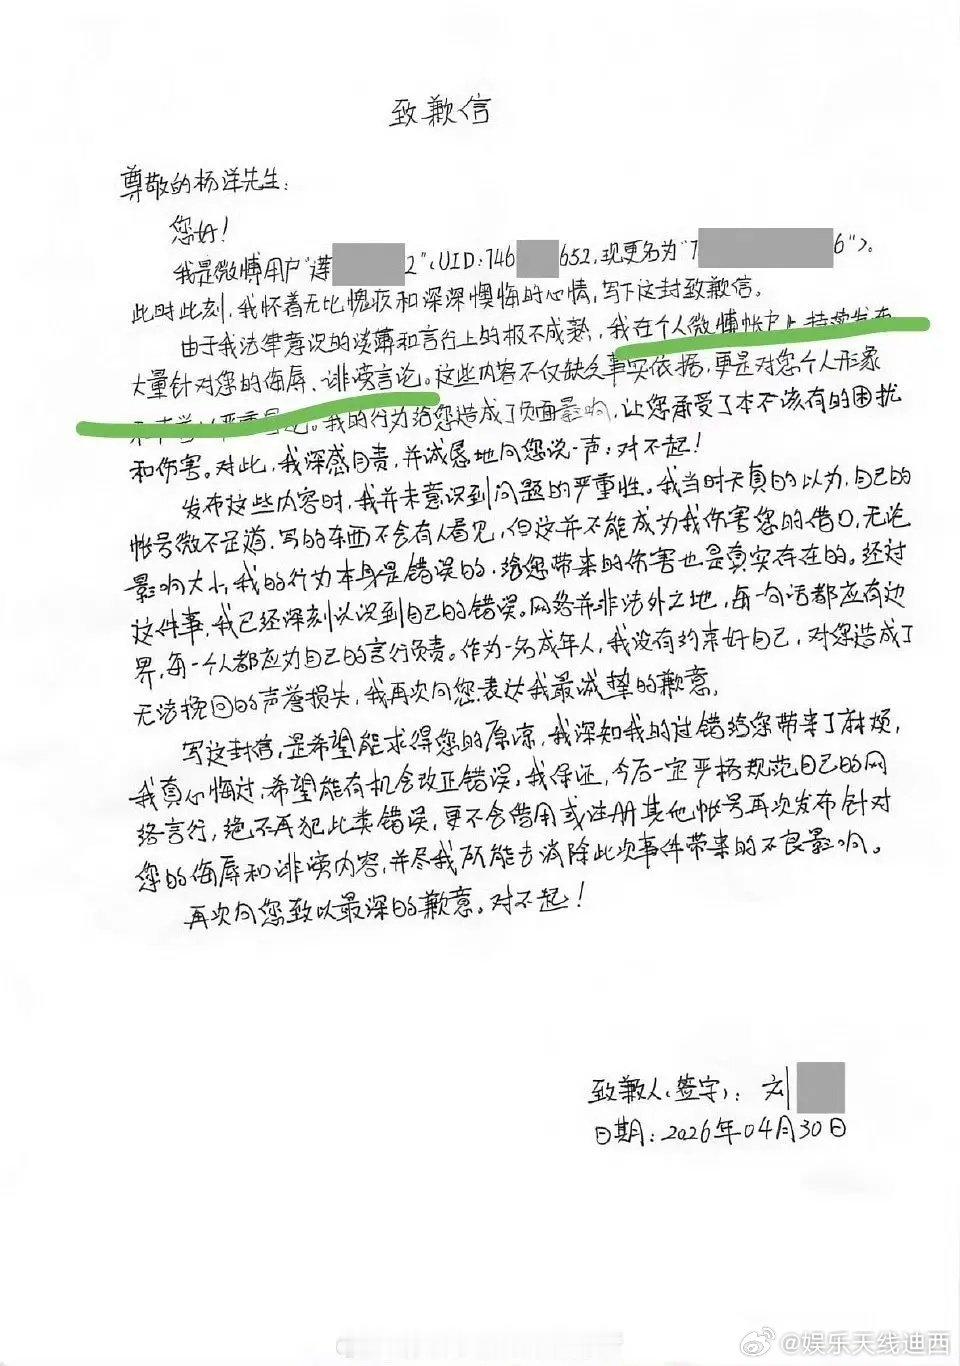 致歉信
尊敬的杨洋先生：
您好！
我是微博用户"莲 2"（UID：746 652，现更名为"T 6"）。
此时此刻，我怀着无比愧疚和深深懊悔的心情，写下这封致歉信。
由于我法律意识的淡薄和言行上的极不成熟，我在个人微博帐户上持续发布
大量针对您的侮辱、诽谤言论。这些内容不仅缺乏事实依据，更是对您个人形象
我的行为给您造成了负面影响，让您承受了本不该有的困扰
和伤害。对此，我深感自责，并诚恳地向您说一声：对不起！
发布这些内容时，我并未意识到问题的严重性。我当时天真的以为，自己的
帐号微不足道，写的东西不会有人看见，但这并不能成为我伤害您的借口，无论
影响大小，我的行为本身是错误的，给您带来的伤害也是真实存在的。经过
这件事，我已经深刻认识到自己的错误。网络并非法外之地，每一句话都应有边
界，每一个人都应为自己的言行负责。作为一名成年人，我没有约束好自己，对您造成了
无法挽回的声誉损失，我再次向您表达我最诚挚的歉意。
写这封信，是希望能求得您的原谅，我深知我的过错给您带来了麻烦，
我真心悔过，希望能有机会改正错误。我保证，今后一定严格规范自己的网
络言行，绝不再犯此类错误，更不会借用或注册其他帐号再次发布针对
您的侮辱和诽谤内容，并尽我所能去消除此次事件带来的不良影响。
再次向您致以最深的歉意。对不起！
致歉人（签字）：刘
日期：2026年04月30日
@娱乐天线迪西